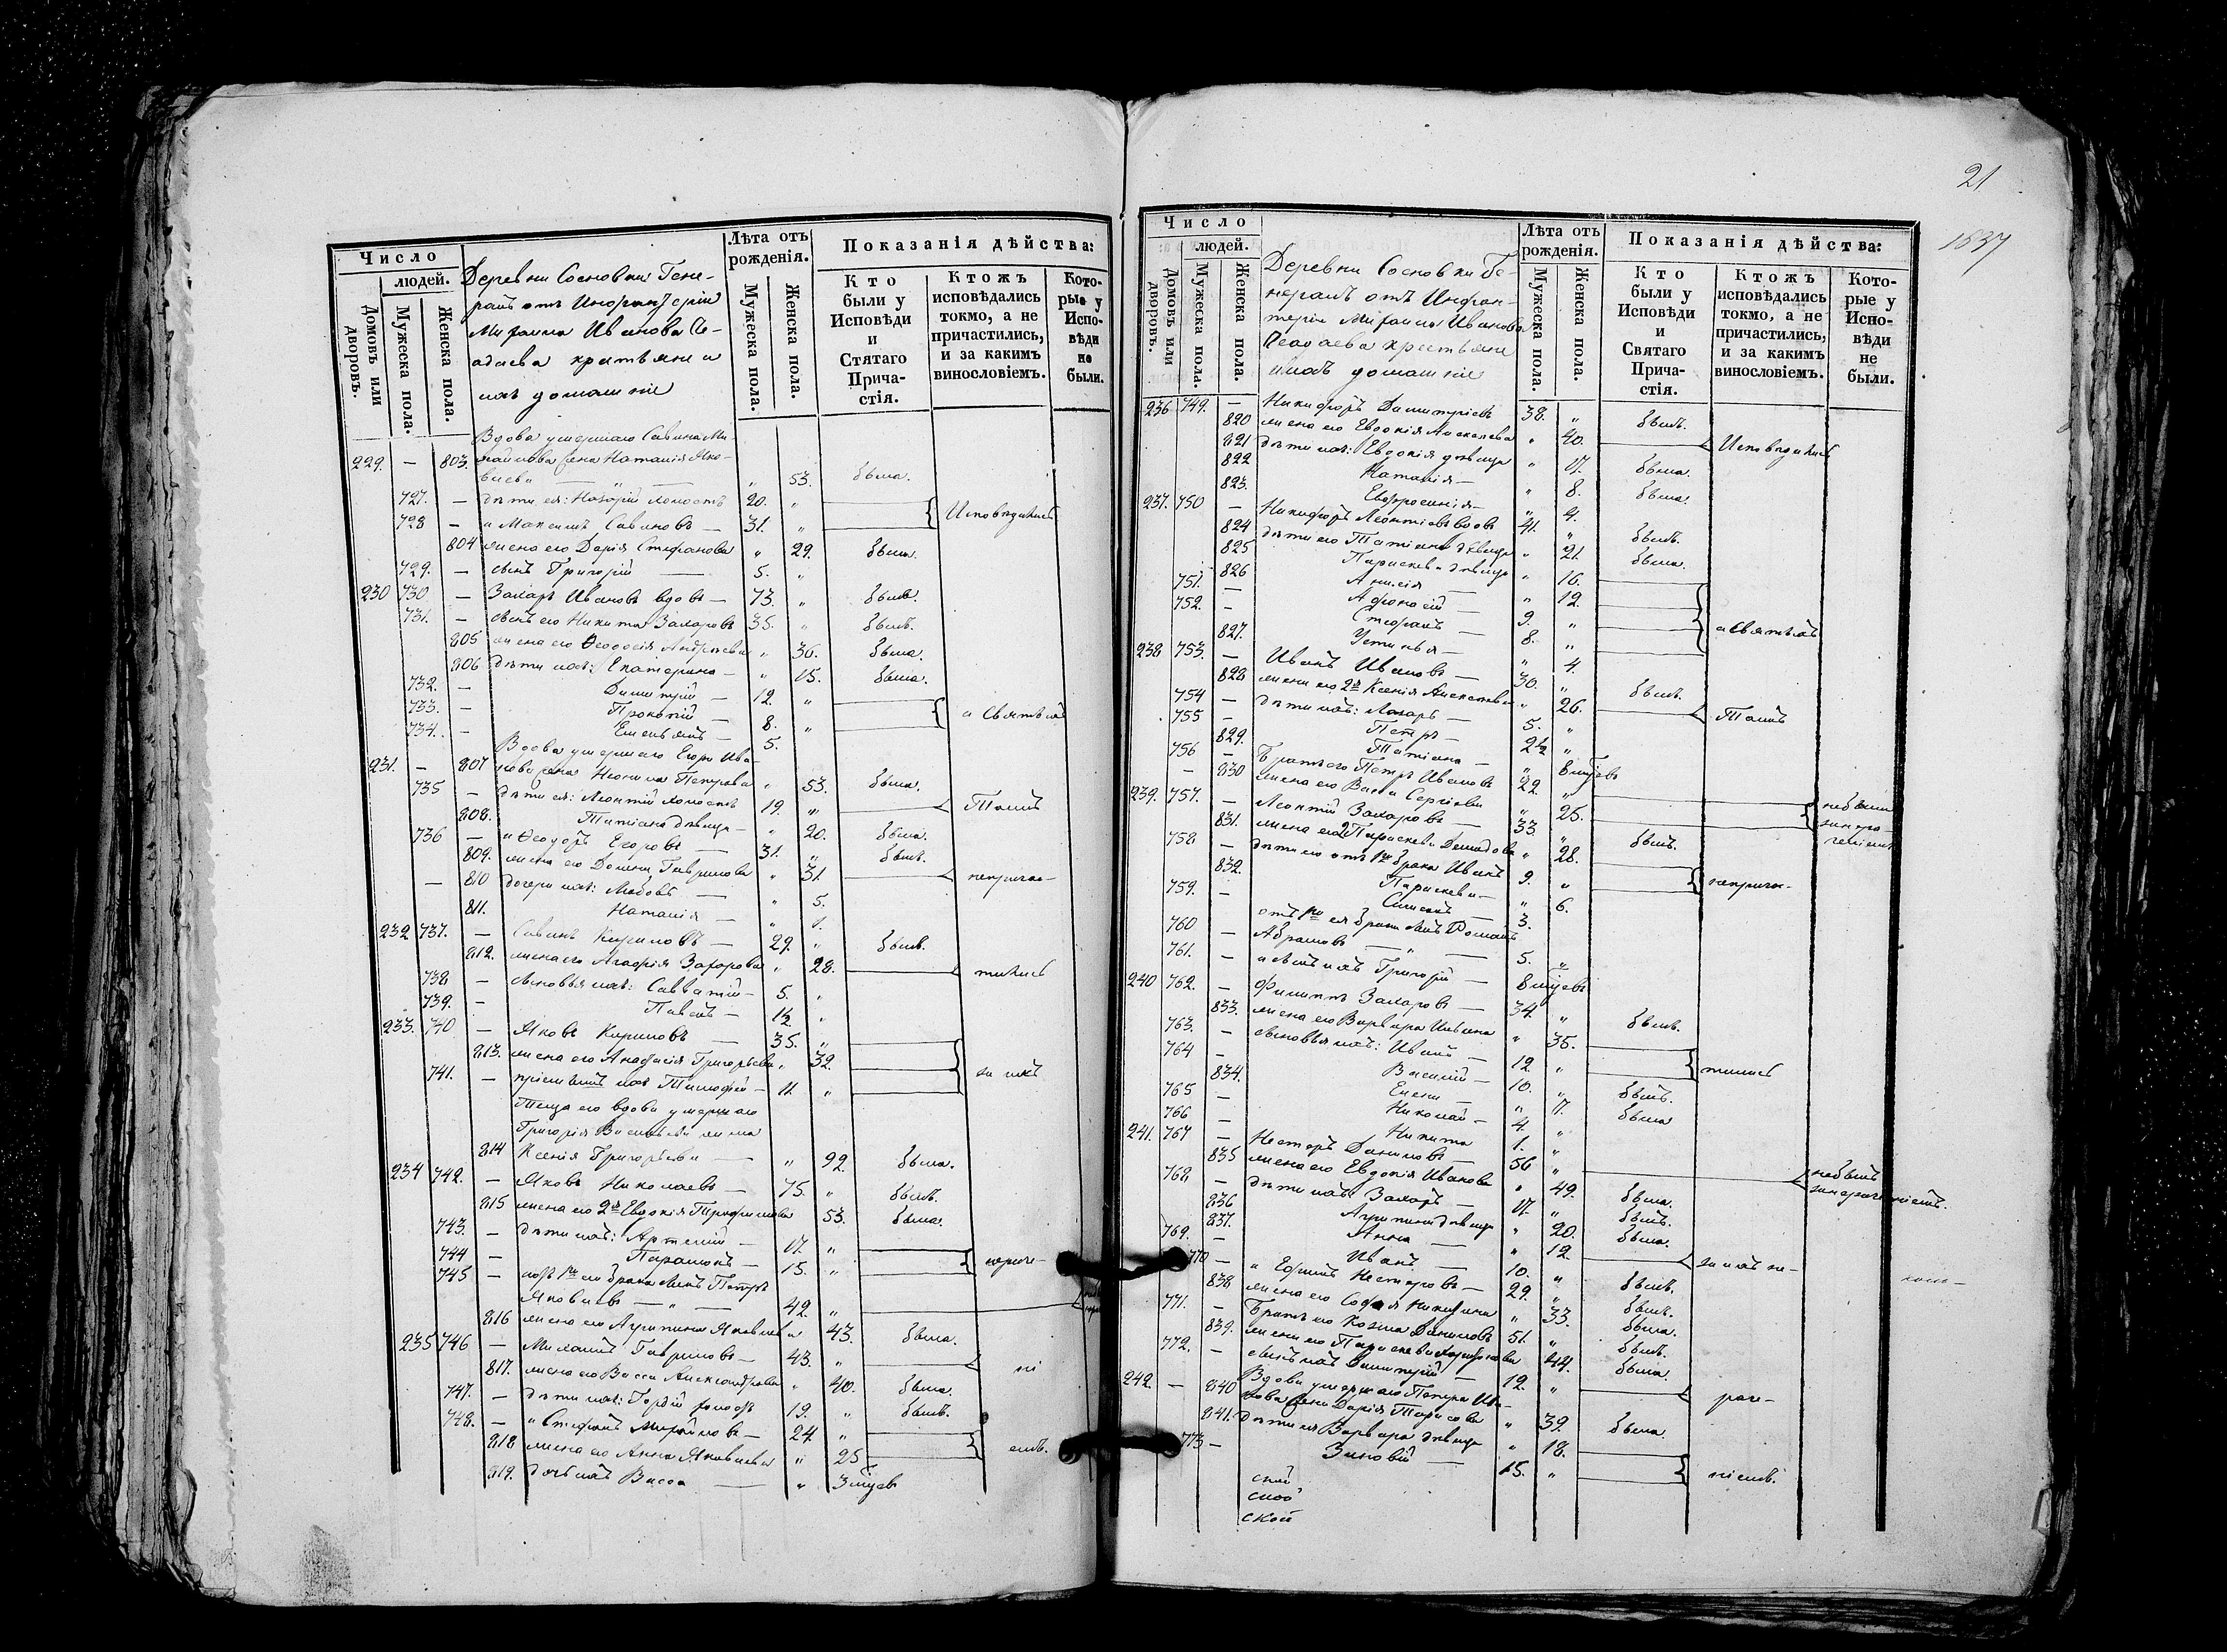 Число
людей.
Домовъ или дворовъ.
Мужеска пола.
Женска пола.
Деревни Сосновки Гене-
ралъ отъ Инфантеріи
Михаила Иванова
крестьяне и
ихъ домашніе
Лѣта отъ рожденія.
Мужеска пола.
Женска пола.
Показанія дѣйства:
Кто были у Исповѣди и Стятаго Прича-стія.
Ктожъ исповѣдались токмо, а не причастились, и за какимъ винословіемъ.
Кото-рые у Испо-вѣди не были.
Вдова умершаго Савина Ми-
229. — 803. хайлова жена Наталія Яко-
влева „ 53. была.
727. — дѣти ея: Назарій холостъ 20. „
728 — и Максимъ Савиновъ — 31. „ Исповѣдались
804 жена его Дарія Стефанова „ 29. была.
729. — сынъ Григорій — 5. „
230 730 — Захаръ Ивановъ вдовъ — 73. „ былъ.
731. — сынъ его Никита Захаровъ 35. „ былъ.
805 жена его Ѳеодосія Андреева „ 36. была.
806 дѣти ихъ: Екатерина — „ 15. была.
732. — Димитрій — 12. „
733. — Прокопій — 8. „ а Святыхъ
734. — Емельянъ — 5.
Вдова умершаго Егора Ива-
231. — 807 нова жена Неонила Петрова „ 53. была.
735 — дѣти ея: Леонтій холостъ 19. „ Таинъ
808. Татіана дѣвица — „ 20. была.
736 — и Ѳеодоръ Егоровъ — 31. „ былъ.
809. жена его Домна Гаврилова „ 31. непричас-
— 810 дочери ихъ: Любовь — „ 5.
811. Наталія — „ 1.
232 737. — Савинъ Кириловъ — 29. „ былъ.
812. жена его Агафія Захарова „ 28. тились
738 — сыновья ихъ: Савватій — 5. „
739. — Павелъ — 1½ „
233. 740 — Яковъ Кириловъ — 35. „
813. жена его Анастасія Григорьева „ 32. за ихъ
741. — пріемышъ ихъ Тимофей — 11. „
Теща его вдова умершаго
Григорія Васильева жена
814 Ксенія Григорьева — „ 92. была.
234 742. — Яковъ Николаевъ — 75. „ былъ.
815 жена его 2я Евдокія Трофимова 53. была.
743. — дѣти ихъ: Артемій — 17. „
744 — Парамонъ — 15. „
745 — отъ 1го его брака сынъ Петръ
Яковлевъ — „ — 42. „
816 жена его Агрипина Яковлева 43. была.
235 746 — Михаилъ Гавриловъ — 43. „ ні
817. жена его Васса Александрова „ 40. была.
747. — дѣти ихъ: Гордій холостъ 19. „ былъ.
748. — и Стефанъ Михайловъ — 24. „
818 жена его Анна Яковлева „ 25 емъ.
819. дочь ихъ Васса — „ 3 мѣсев
21
1637
Число
людей.
Домовъ или дворовъ.
Мужеска пола.
Женска пола.
Деревни Сосновки Ге-
нералъ отъ Инфан-
теріи Михаила Иванова
крестьяне
и ихъ домашніе
Лѣта отъ рожденія.
Мужеска пола.
Женска пола.
Показанія дѣйства:
Кто были у Исповѣди и Святаго Прича-стія.
Ктожъ исповѣдались токмо, а не причастились, и за какимъ винословіемъ.
Кото-рые у Испо-вѣди не были.
236 749. — Никифоръ Димитріевъ 38. „ былъ.
820 жена его Евдокія Алексеева „ 40. Исповѣдались
821 дѣти ихъ: Евдокія дѣвица „ 17. была.
822 Наталія — „ 8. была.
823. Евфросинія — „ 4.
237. 750 — Никифоръ Леонтіевъ вдовъ 41. „ былъ.
824 дѣти его Татіана дѣвица „ 21. была.
825 Параскева дѣвица „ 16.
826 Анисія — „ 12.
751. — Афонасій — 9. „ а Святыхъ
752. — Стефанъ — 8. „
827. Устинья — „ 4.
238 753. — Иванъ Ивановъ — 30. „ былъ.
828 жена его 2я Ксенія Алексеева „ 26. Таинъ
754 — дѣти ихъ: Лазарь — 5. „
755 — Петръ — 2½ „
829. Татіана — „ 8 мѣсев
756 — Братъ его Петръ Ивановъ 22. „ небыли
830 жена его Васса Сергіева „ 25.
239. 757. — Леонтій Захаровъ — 33. „ былъ.
831. жена его 2 Параскева Демидова „ 28. непричас-
758 — дѣти его отъ 1го брака Иванъ 9. „
832. Параскева — „ 6.
759. — Симеонъ — 3.
отъ 1го ея брака сынъ Романъ
760 — Абрамовъ — 5. „
761. — и сынъ ихъ Григорій — 8 мѣсевъ
240 762. — Филиппъ Захаровъ — 34. „ былъ.
833. жена его Варвара „ 35. тились
763. — сыновья ихъ: Иванъ — 12 „
764 — Василій — 10. „ былъ.
834. Елена — „ 7. была
765 — Николай — 4. „
766 — Никита 1. „
241. 767 — Несторъ Даниловъ — 56 „ небылъ
835 жена его Евдокія Иванова „ 49. была.
768 — дѣти ихъ Захаръ — 17. „ былъ.
836 Агрипина дѣвица „ 20. была.
837. Анна — „ 12.
769. — Иванъ — 10. „ за ихъ не-
770 — и Ефимъ Несторовъ — 29. „ былъ.
838 жена его Софія Никитина „ 33. была.
771. — Братъ его Козма Даниловъ 51. „ былъ.
839. жена его Параскева „ 44. была.
772. — сынъ ихъ Димитрій — 12. „ раче-
Вдова умершаго Петра Ива-
242. — 840 нова жена Дарія Тарасова „ 39. была.
841. дѣти ея Варвара дѣвица „ 18.
773 — Зиновій — 15. „ ніемъ.
ской
ской
ской